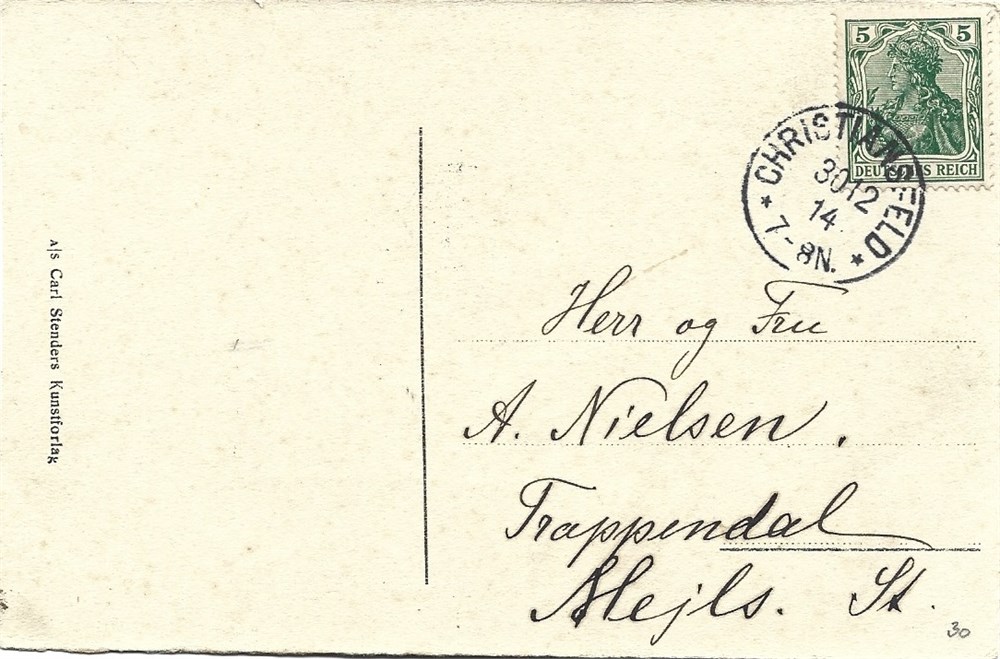 5 5
DEUTSCHES REICH
* CHRISTIANSFELD *
30 12
14.
7-8N.
A|s Carl Stenders Kunstforlak
Herr og Fru
A. Nielsen,
Trappendal
Hejls. St.
30